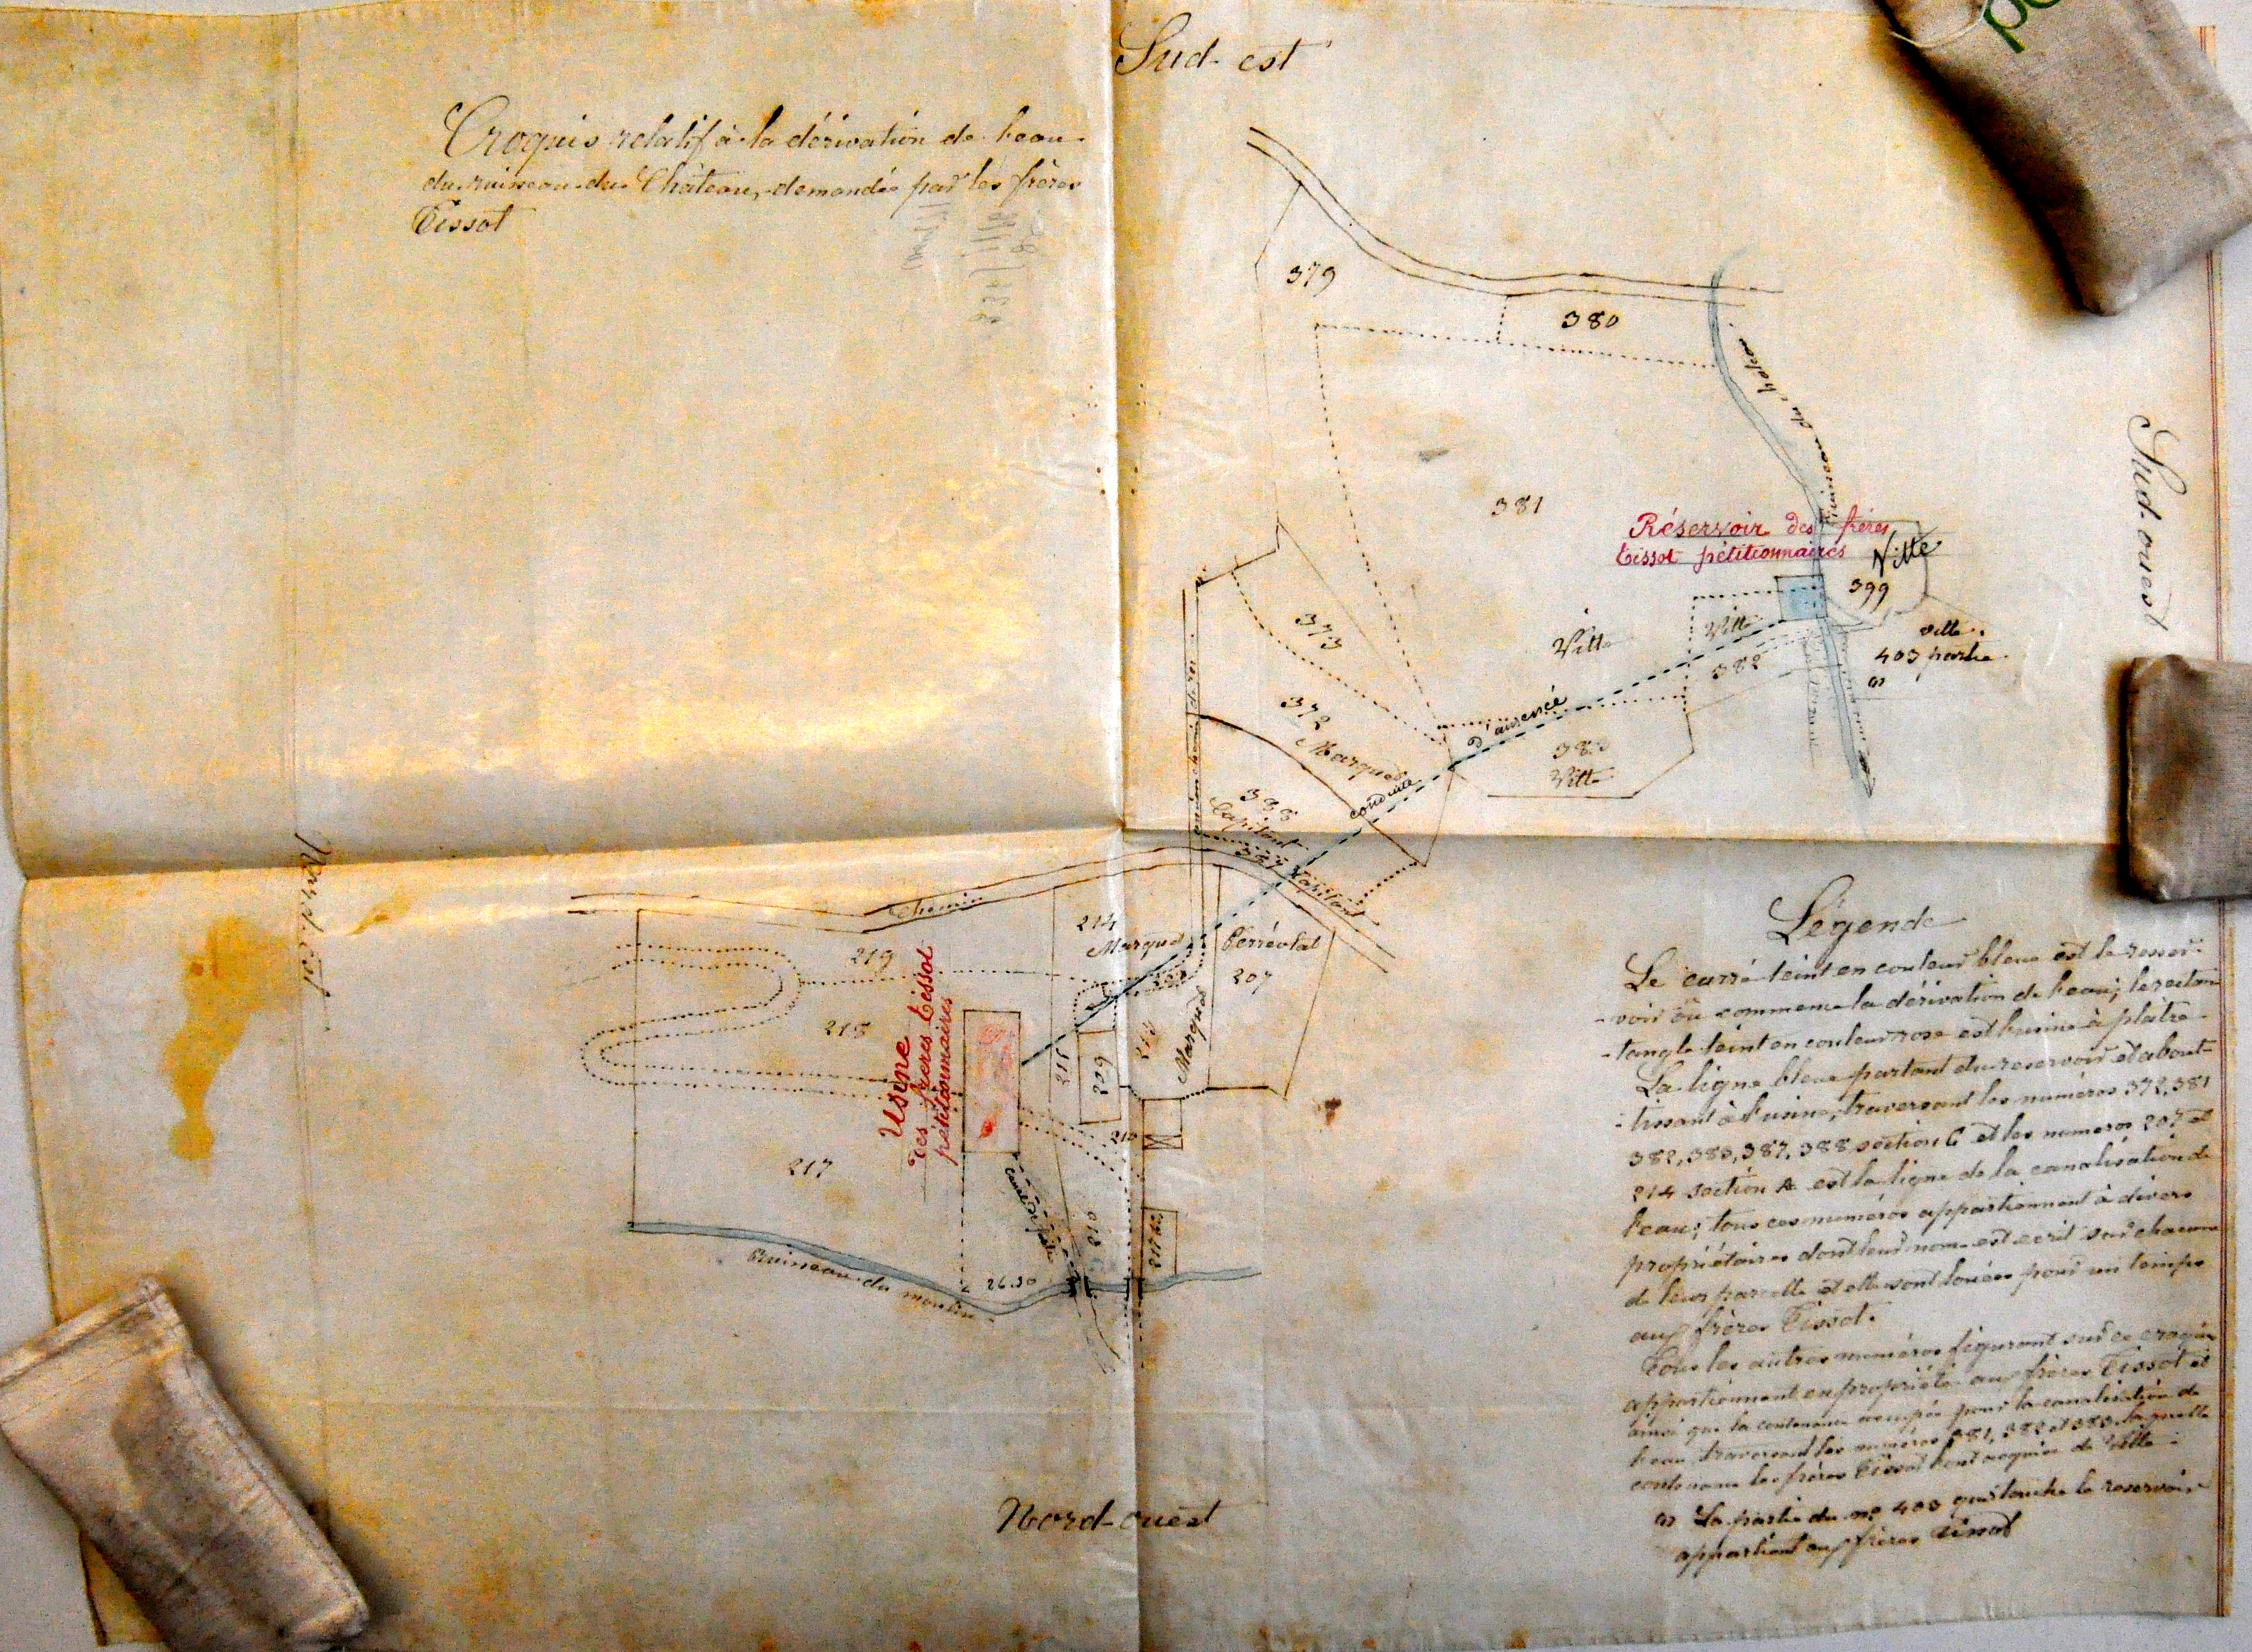 Sud-est
Croquis relatif à la dérivation de l'eau
du ruisseau du Château, demandée par les frères
Tissot
379
380
ruisseau du château
381
Sud-ouest
Réservoir des frères
Tissot pétitionnaires
Vitte
399
373
Vitte
Vitte
382
vitte.
403 partie
(1)
372
Marquet
conduite d'amenée
383
Vitte
388
Capitant
387 Capitant
Nord-Est
chemin
214
Marquet
Perréolat
207
219
218
Usine
des frères Tissot
pétitionnaires
215
209
213
Marquet
210
217
canal de fuite
216
217 bis
Ruisseau du moulin
26.50
Nord-ouest
Légende
Le carré teint en couleur bleue est le reser-
-voir où commence la dérivation de l'eau; le rectan
-tangle teint en couleur rose est l'usine à plâtre
La ligne bleue partant du reservoir et about-
-tissant à l'usine, traversant les numéros 372, 381
382, 383, 387, 388 section C et les numeros 207 et
214 section A est la ligne de la canalisation de
l'eau; tous ces numéros appartiennent à divers
propriétaires dont leur nom est ecrit sur chacune
de leur parcelle et elle sont louées pour un temps
aux frères Tissot.
Tous les autres numéros figurant sur ce croquis
appartiennent en propriété aux frères Tissot et
ainsi que la contenance occupée pour la canalisation de
l'eau traversant les numéros 381, 382 et 383 laquelle
contenance les frères Tissot ont acquise de Vitte.
(1) La partie du no 403 qui touche le reservoir
appartient aux frères Tissot